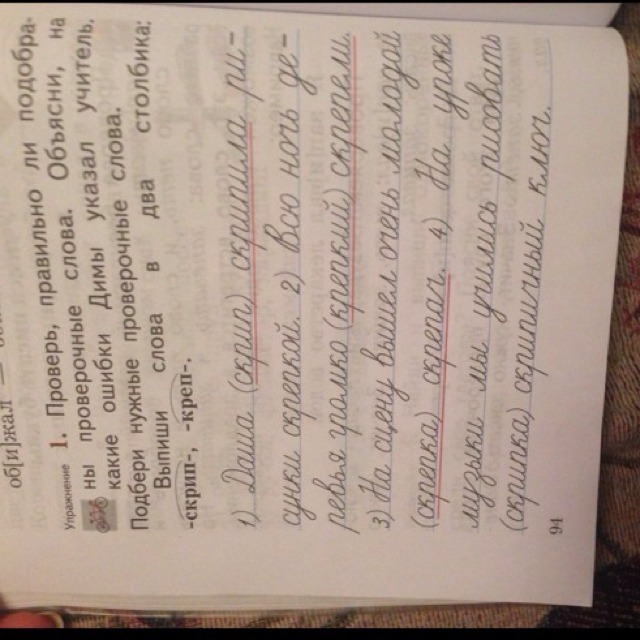 об[и]жал —
Упражнение 1. Проверь, правильно ли подобра-
ны проверочные слова. Объясни, на
какие ошибки Димы указал учитель.
Подбери нужные проверочные слова.
Выпиши слова в два столбика:
-скрип-, -креп-.
1) Даша (скрип) скрипила ри-
сунки скрепкой. 2) Всю ночь де-
ревья громко (крепкий) скрепели.
3) На сцену вышел очень молодой
(скрепка) скрепач. 4) На уроке
музыки мы учились рисовать
(скрипка) скрипичный ключ.
94